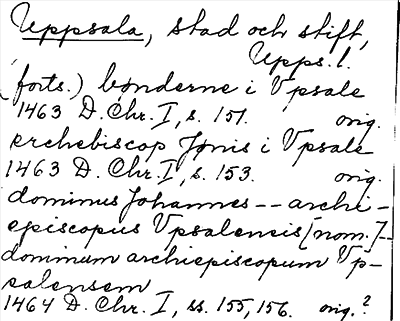 Uppsala, stad och stift,
Upps. l.
(forts.) bønderne i Vpsale
1463 D. Chr. I, s. 151. orig.
erchebiscop Jønis i Vpsale
1463 D. Chr. I, s. 153. orig.
dominus Johannes -- archi-
episcopus Vpsalensis [nom.] -
dominum archiepiscopum Vp-
salensem
1464 D. Chr. I, ss. 155, 156. orig.?